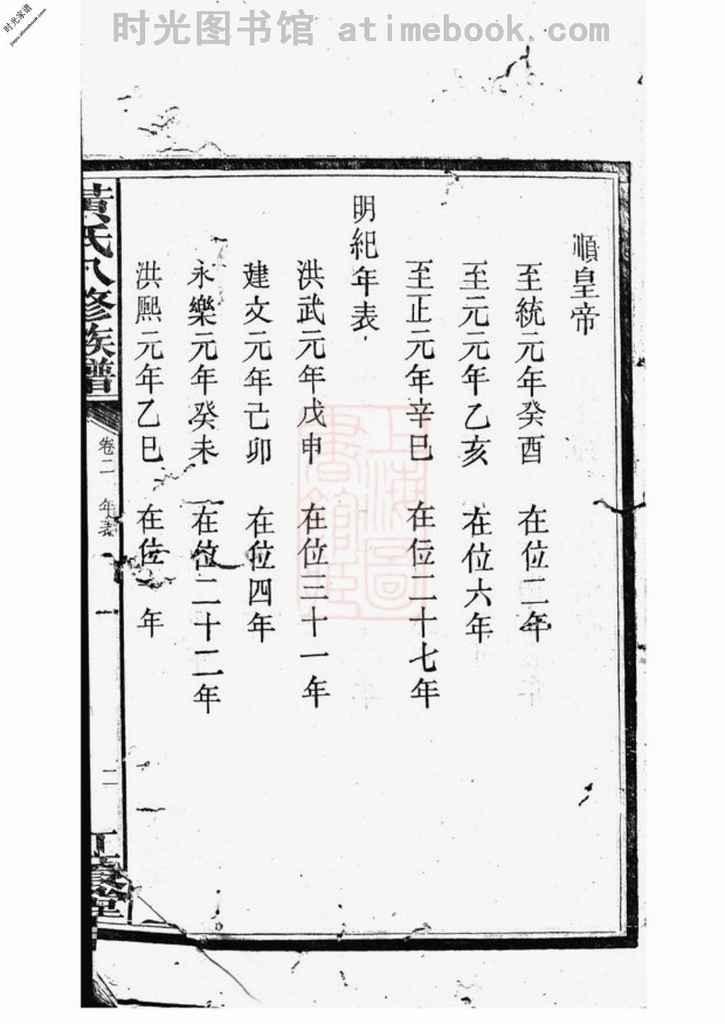 时光图书馆 atimebook.com
时光家谱
順皇帝
至統元年癸酉 在位二年
至元元年乙亥 在位六年
至正元年辛巳 在位二十七年
明紀年表
洪武元年戊申 在位三十一年
建文元年己卯 在位四年
永樂元年癸未 在位二十二年
洪熙元年乙巳 在位 年
黃氏八修族譜
卷二 年表
二
上海圖
書館藏